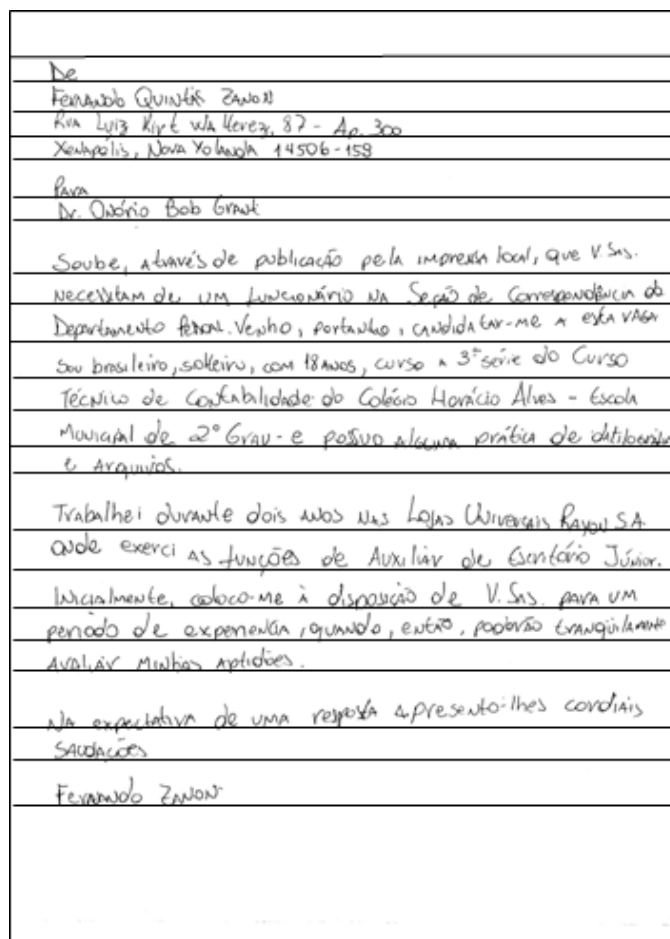 De
Fernando Quintas Zanon
Rua Luiz Kirt Walterez, 87 - Ap. 300
Xenápolis, Nova Yolanda 14506-159
Para
Dr. Onório Bob Grant
Soube, através de publicação pela imprensa local, que V. Sas.
necessitam de um funcionário na Seção de Correspondência do
Departamento Pessoal. Venho, portanto, candidatar-me a esta vaga
Sou brasileiro, solteiro, com 18 anos, curso a 3ª série do Curso
Técnico de Contabilidade do Colégio Horácio Alves - Escola
Municipal de 2º Grau - e possuo alguma prática de
e Arquivos.
Trabalhei durante dois anos nas Lojas Universais Rayon S.A
onde exerci as funções de Auxiliar de Escritório Júnior.
Inicialmente, coloco-me à disposição de V. Sas. para um
período de experiencia, quando, então, poderão tranqüilamente
avaliar minhas aptidões.
Na expectativa de uma resposta apresento-lhes cordiais
saudações
Fernando Zanon